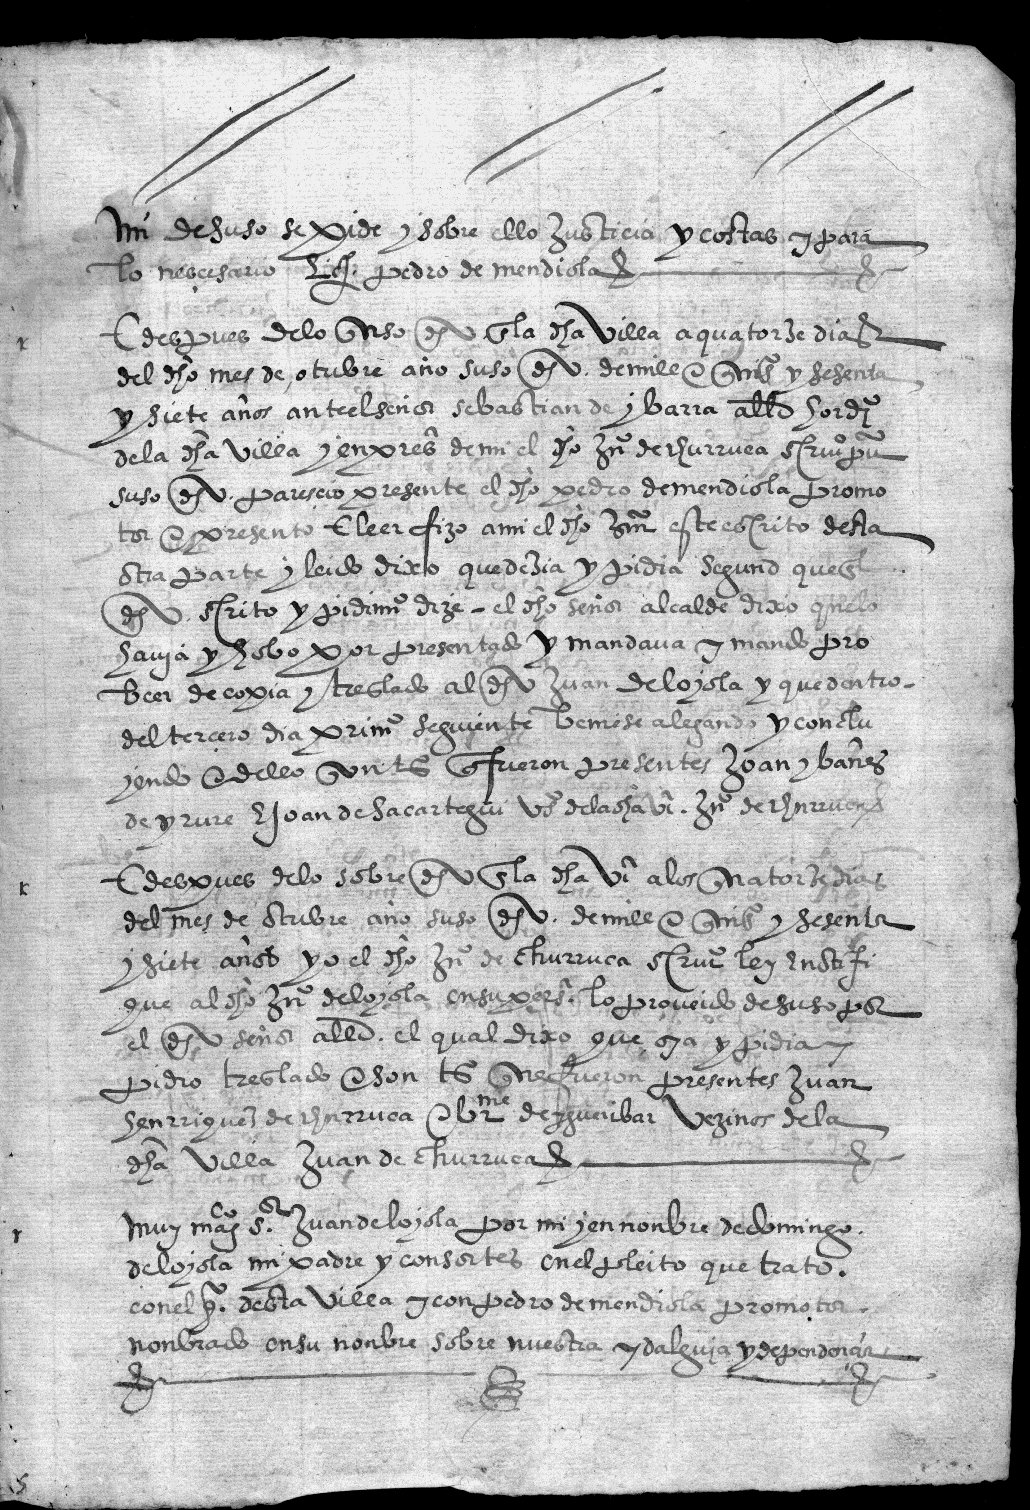 mi de suso se pide y sobre ello Justicia y costas y para
lo nescesario Liçdo. pedro de mendiola
E despues delo suso dho en la dha villa a quatorze dias
del dho mes de otubre año suso dho. de mill e quis y sesenta
y siete años ante el señor sebastian de ybarra allde hordi
de la dha villa y en pres de mi el dho Jn de churruca scriu pu
suso dho. parescio presente el dho pedro de mendiola promo
tor e presento E leer fizo a mi el dho Jn este escrito desta
otra parte y leido dixo que dezia y pidia segund que en el
dho scrito y pidimi dize - el dho señor alcalde dixo quelo
havia y hobo por presentado y mandava y mando pro
beer de copia y treslado al dho Juan de loyola y que dentro
del tercero dia prim seguiente beniese alegando y conclu
yendo e dello son ts que fueron presentes Joan ybañes
de yrure E Joan de sacartegui vs dela dha vi. Jn de churruca
E despues delo sobre dho en la dha vi a los quatorze dias
del mes de otubre año suso dho. de mill e quis y sesenta
y siete años yo el dho Jn de churruca scriu ley E notifi
que al dho Jn de loyola en su pers. lo proueido de suso por
el dho señor allde. el qual dixo que oya y pidia y
pidio treslado e son ts que fueron presentes Juan
henrriques de churruca e brme de egueibar vezinos de la
dha villa Juan de churruca
muy magco Sor. Juan de loyola por mi y en nonbre de domingo
de loyola mi padre y consortes en el pleito que trato.
con el qo. desta villa y con pedro de mendiola promotor
nonbrado en su nonbre sobre nuestra ydalguia y dependençias